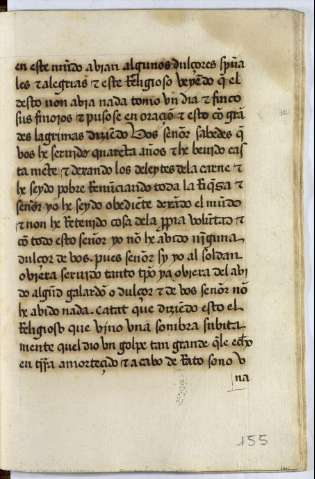 en este mũdo avian algunos dulçores spũa
les ⁊ alegrias ⁊ este rreligioso veyẽdo q̃ el
desto non avia nada tomo vn dia ⁊ finco
sus finojos ⁊ puso se en oraciõ ⁊ esto cõ grã
des lagrimas diziẽdo Vos señor sabedes q̃
vos he servido quarẽta años ⁊ he bevido cas
ta mẽte ⁊ dexando los deleytes dela carne ⁊
he seydo pobre rrenũciando toda la rriq̃za ⁊
señor yo he seydo obediẽte dexãdo el mũdo
⁊ non he rretenido cosa dela ppria volũtad ⁊
cõ todo esto señor yo nõ he avido nĩguna
dulçor de vos. pues señor sy yo al soldan
oviera servido tanto tp̃o ya oviera del avi
do algũd galardõ o dulçor ⁊ de vos señor nõ
he avido nada. catat que diziẽdo esto el
rreligioso que vino vna sonbra subita
mente quel dio vn golpe tan grande q̃le echo
en trr̃a amorteçido ⁊ a cabo de rrato sono v
na
155